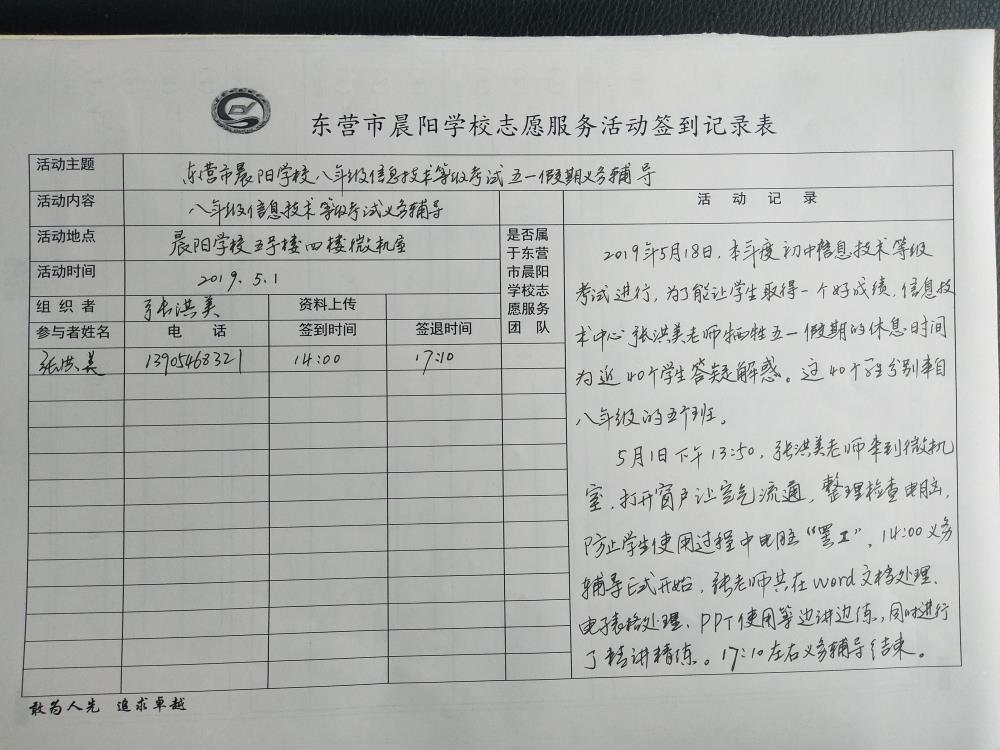 东营市晨阳学校志愿服务活动签到记录表
活动主题 东营市晨阳学校八年级信息技术等级考试五一假期义务辅导
活动内容 八年级信息技术等级考试义务辅导
活动记录
活动地点 晨阳学校五号楼四楼微机室
是否属
于东营
市晨阳
学校志
愿服务
团队
活动时间 2019.5.1
组织者 张洪美 资料上传
参与者姓名 电话 签到时间 签退时间
张洪美 13905468321 14:00 17:10
2019年5月18日,本年度初中信息技术等级
考试进行,为了能让学生取得一个好成绩,信息技
术中心张洪美老师牺牲五一假期的休息时间
为近40个学生答疑解惑。这40个学生分别来自
八年级的五个班。
5月1日下午13:50,张洪美老师来到微机
室,打开窗户让空气流通,整理检查电脑,
防止学生使用过程中电脑“罢工”,14:00义务
辅导正式开始,张老师共在word文档处理、
电子表格处理、PPT使用等边讲边练,同时进行
了精讲精练。17:10左右义务辅导结束。
敢为人先 追求卓越